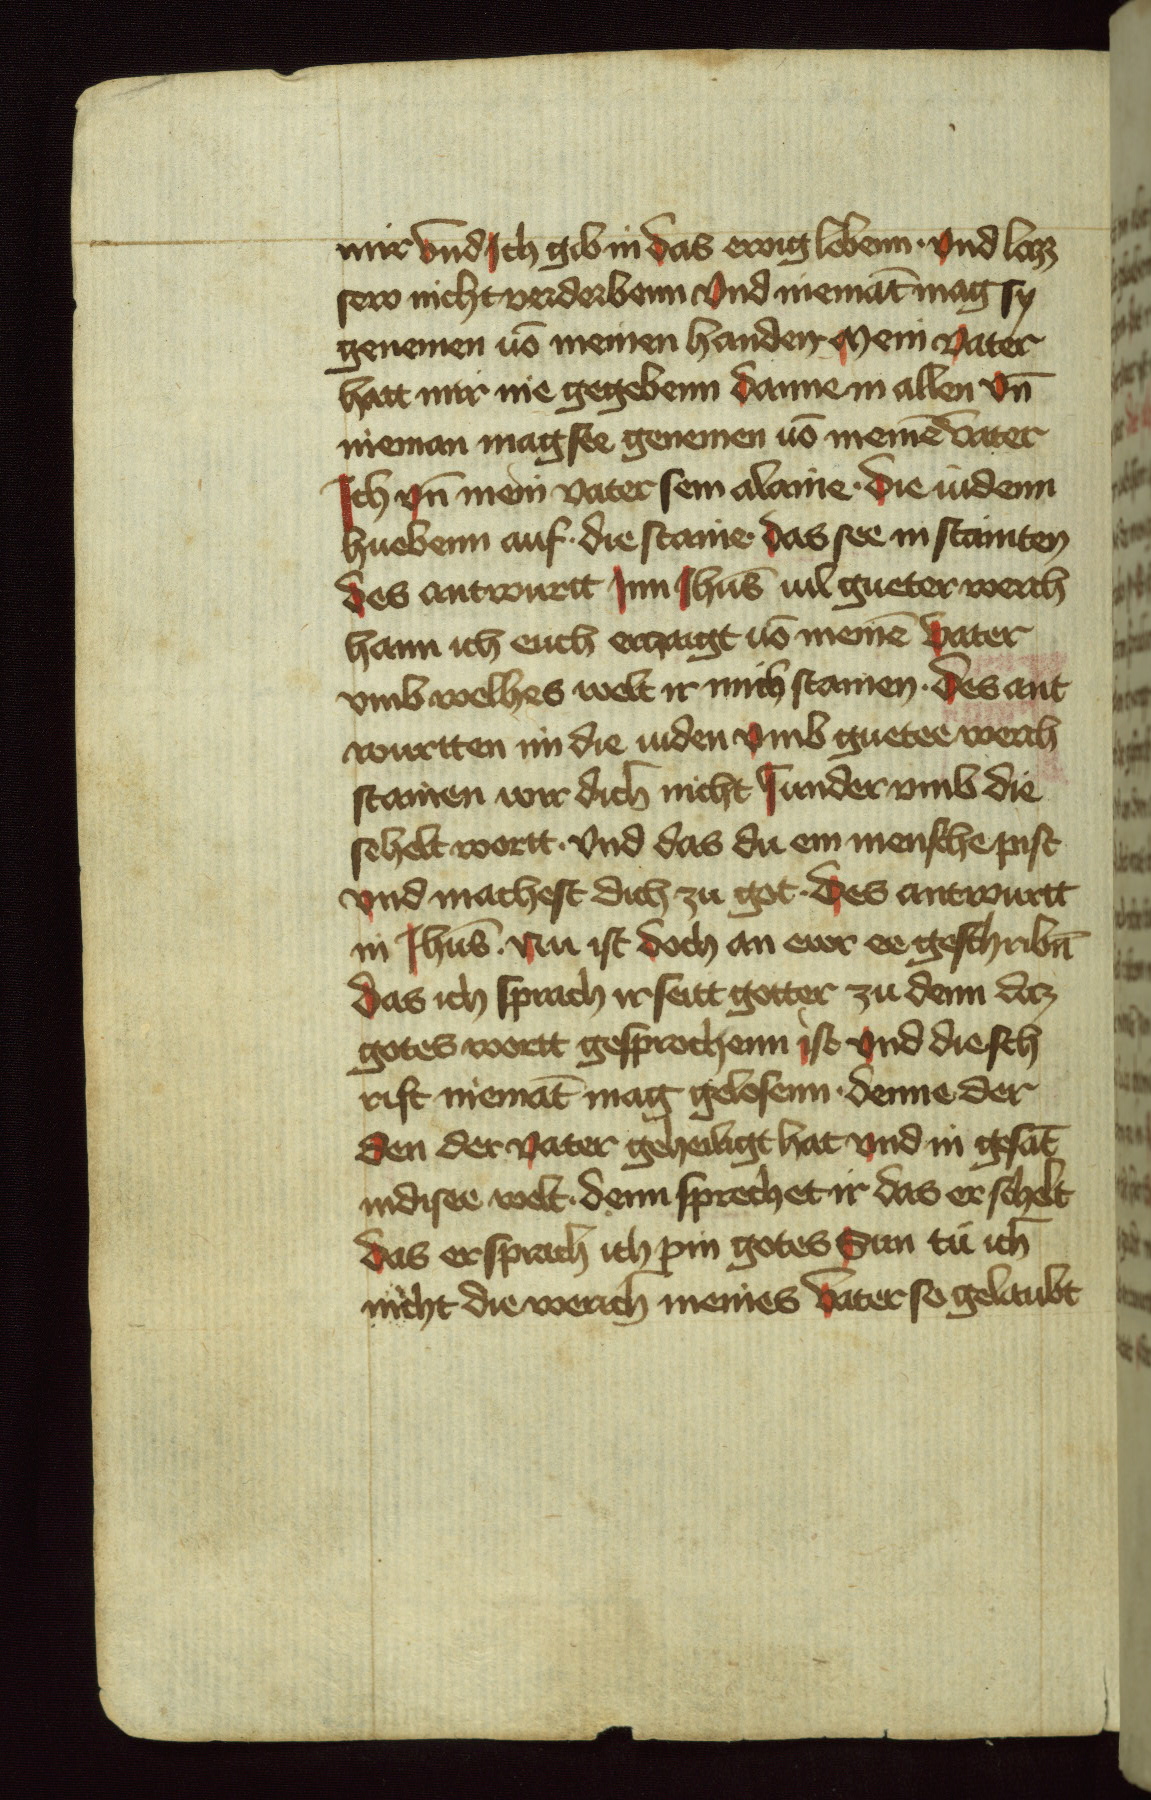 mir vnd Ich gib in das ewig lebenn · vnd laz
sew nicht verderbenn Vnd niemāt mag sy
genemen vō meinen handen Mein Vater
hatt mir nie gegebenn danne in allen Vn̄
nieman mag see genemen vō meinē Vater
Ich vn̄ mein vater sein alaine · Die iudenn
huebenn auf · die staine das see in stainten
des antwurtt Inn Jhūs vil gueter werch
hann ich euch erzaigt vō meinē Vater
vmb welhes welt ir mich stainen · Des ant
wurtten im die iuden Vmb guetee werch
stainen wir dich nicht Sunder vmb die
schelt wortt · Vnd das du ein mensche pist
vnd machest dich zu got · Des antwurtt
in Jhūs · Nu ist doch an ewr ee geschribn̄
das ich sprach ir seitt gotter zu denn daz
gotes wortt gesprochenn ist Vnd die sch
rift niemāt mag gelosenn · denne der
den der Vater geheiligt hat vnd in gesāt
in disee welt · denn sprechet ir das er schelt
das er sprach ich pin gotes Sun tū ich
nicht die werich meines Vater so gelaubt